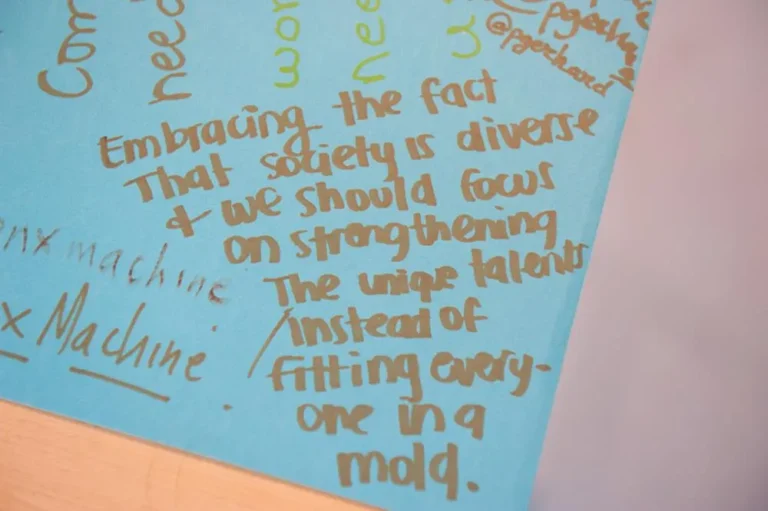 Com
need
wor
nee
u
@pgerhard
Embracing the fact
That society is diverse
& we should focus
on strengthening
The unique talents
/instead of
fitting every-
one in a
mold.
nx machine
x Machine.